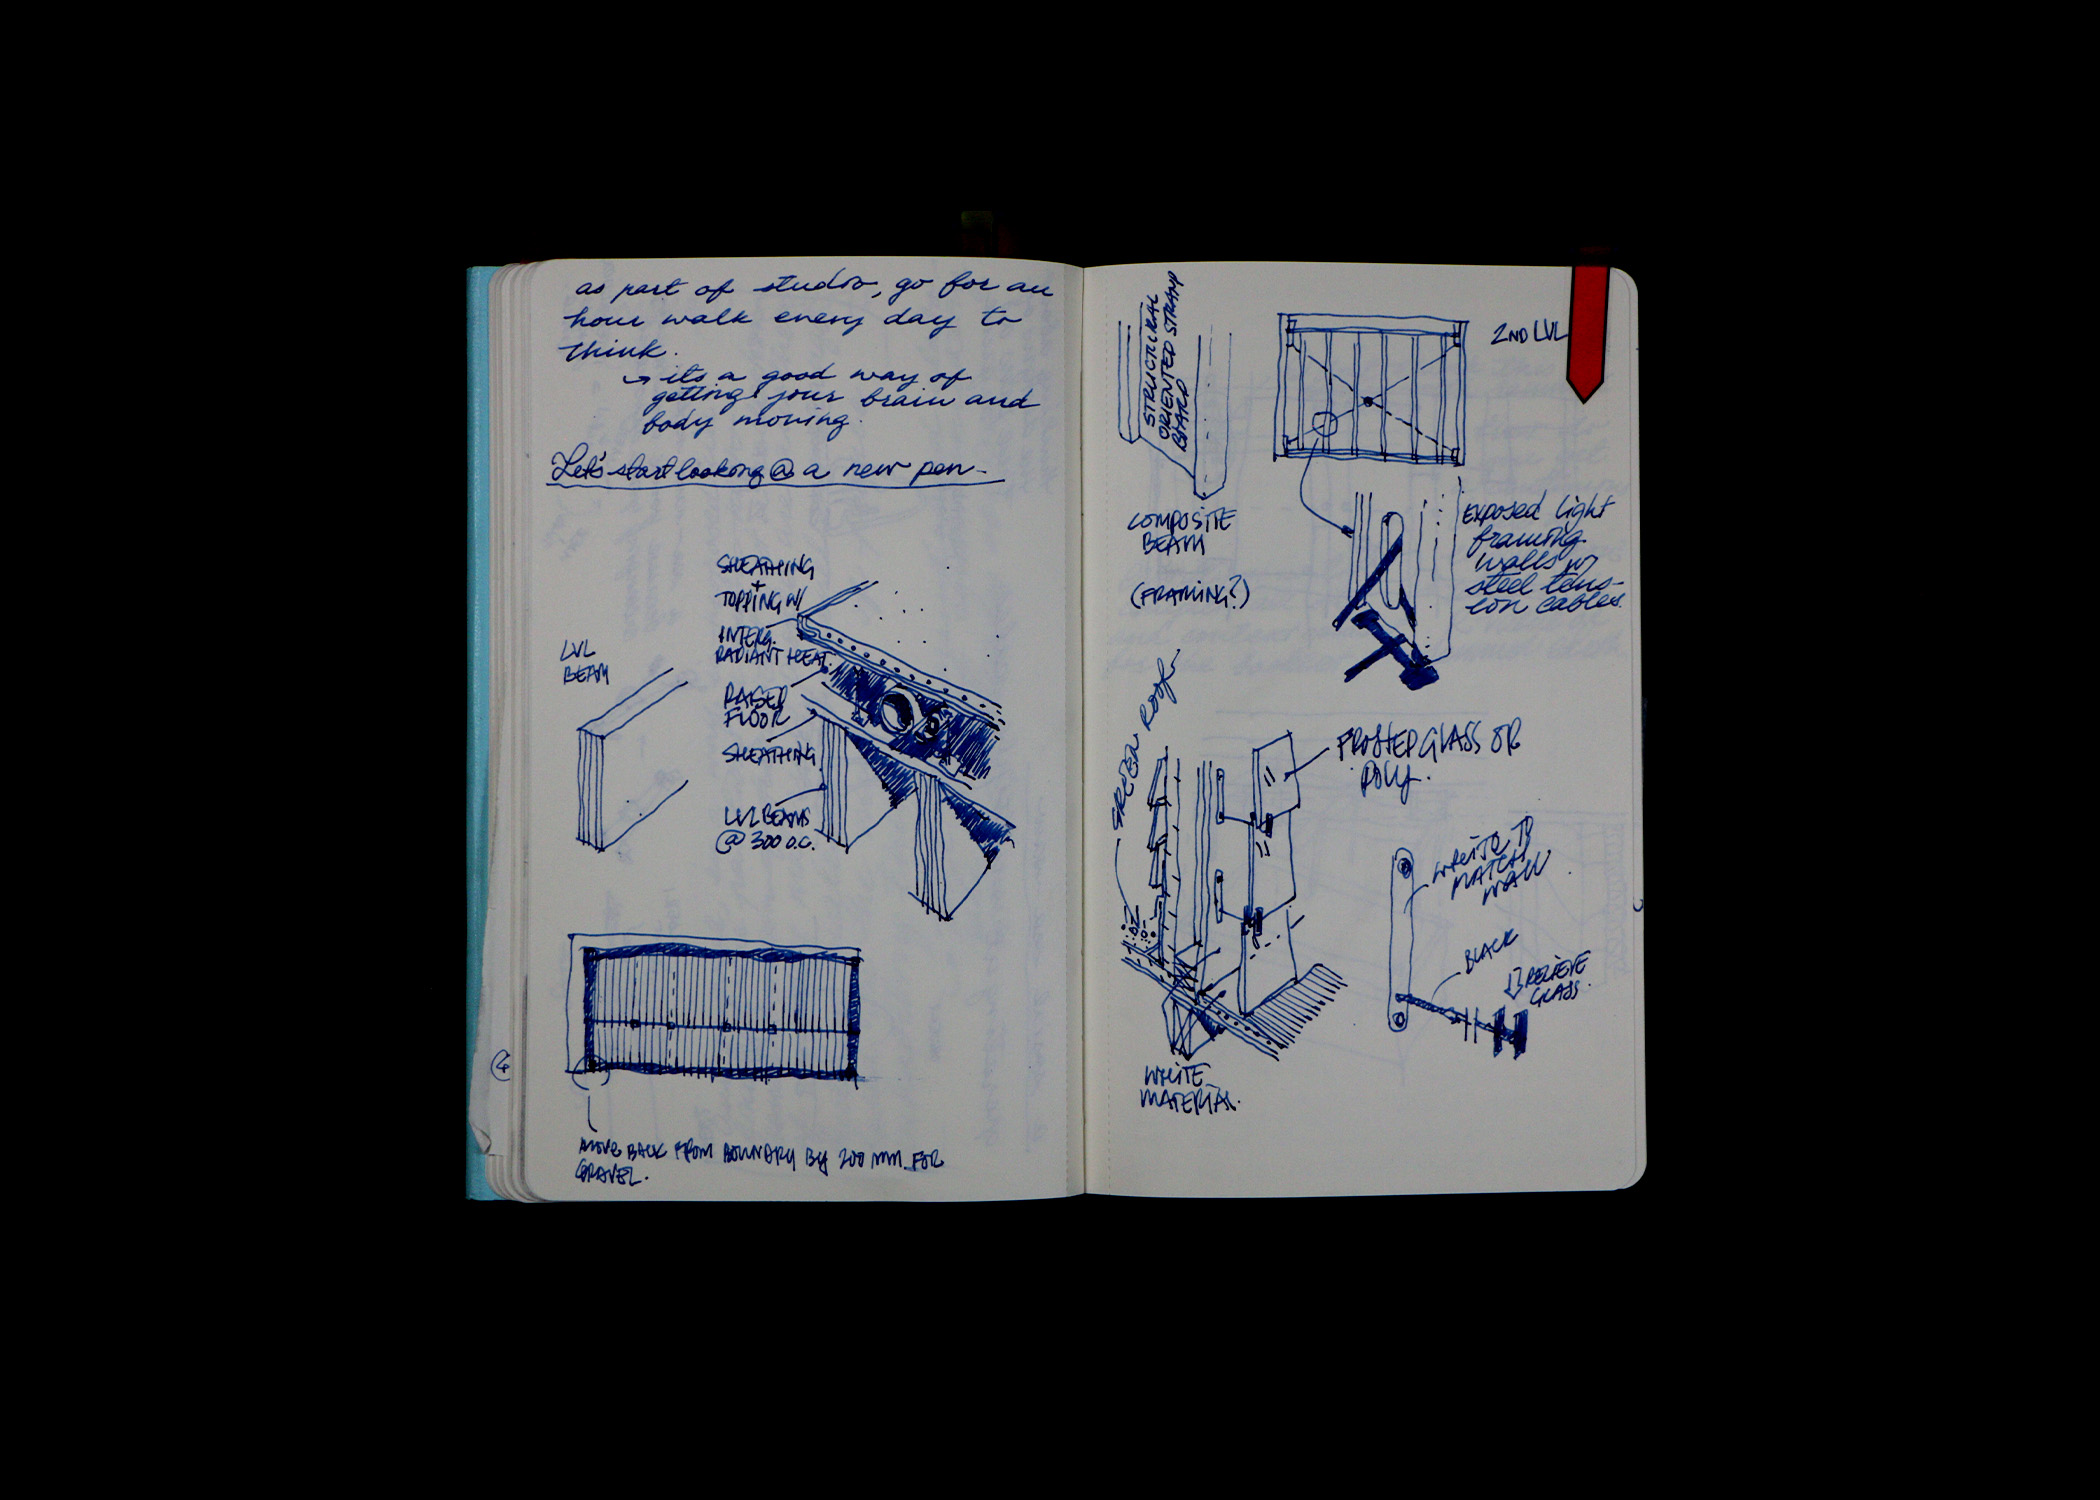 as part of studio, go for an
hour walk every day to
think.
→ its a good way of
getting your brain and
body moving.
Let's start looking @ a new pen-
SHEATHING
+
TOPPING W/
INTERG.
RADIANT HEAT.
RAISED
FLOOR
SHEATHING
LVL BEAMS
@ 300 O.C.
LVL
BEAM
MOVE BACK FROM BOUNDRY BY 200 MM. FOR
GRAVEL.
STRUCTURAL
ORIENTED STRAND
BOARD
COMPOSITE
BEAM
(FRAMING?)
2ND LVL
EXPOSED light
framing
walls w/
steel tens-
ion cables.
GREEN ROOF
FROSTED GLASS OR
POLY.
WHITE TO
MATCH
WALL
BLACK
RELIEVE
GLASS.
WHITE
MATERIAL.